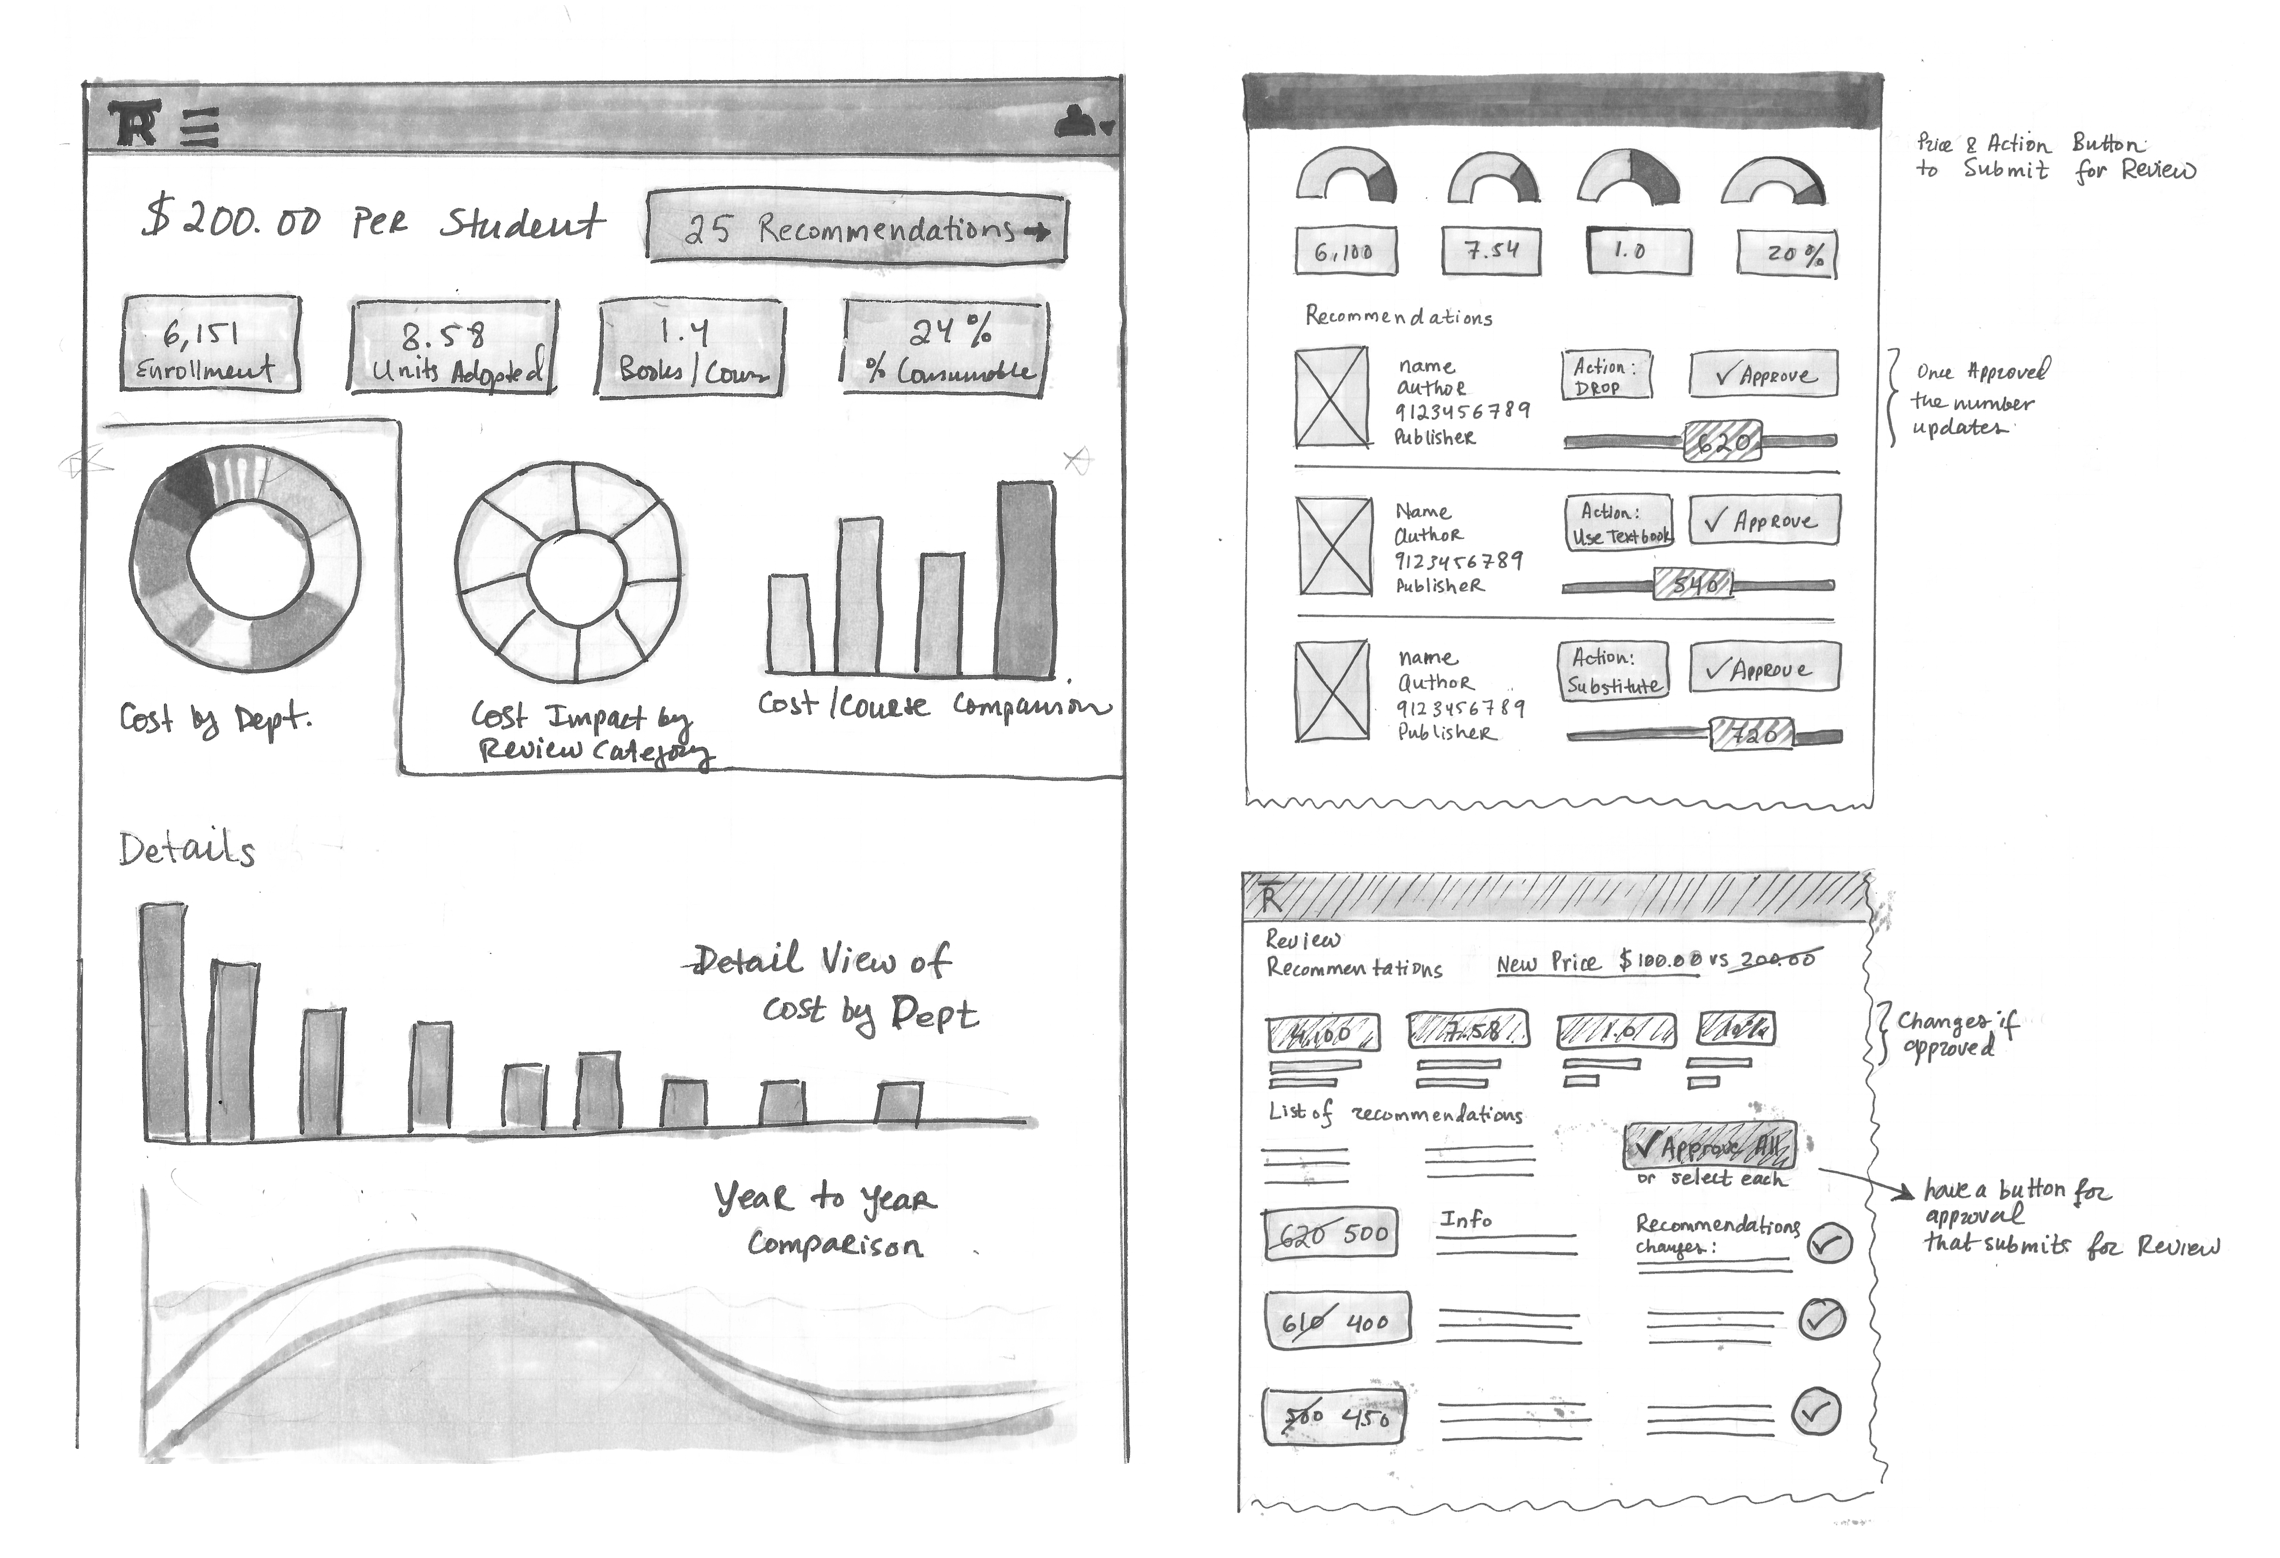 TR
$200.00 PER Student
25 Recommendations →
6,151
Enrollment
8.58
Units Adopted
1.4
Books/Cours
24%
% Consumable
Cost by Dept.
Cost Impact by
Review Category
Cost/Course Comparison
Details
Detail View of
Cost by Dept
Year to Year
Comparison
Price & Action Button
to Submit for Review
6,100
7.54
1.0
20%
Recommendations
name
author
9123456789
Publisher
Action:
DROP
✓ Approve
620
Once Approved
the number
updates
Name
Author
9123456789
Publisher
Action:
Use Textbook
✓ Approve
540
name
Author
9123456789
Publisher
Action:
Substitute
✓ Approve
720
R
Review
Recommentations
New Price $100.00 vs 200.00
4,100
7.58
1.0
Changes if
approved
List of recommendations
✓ Approve All
or select each
have a button for
approval
that submits for Review
620 500
Info
Recommendations
changes:
610 400
500 450